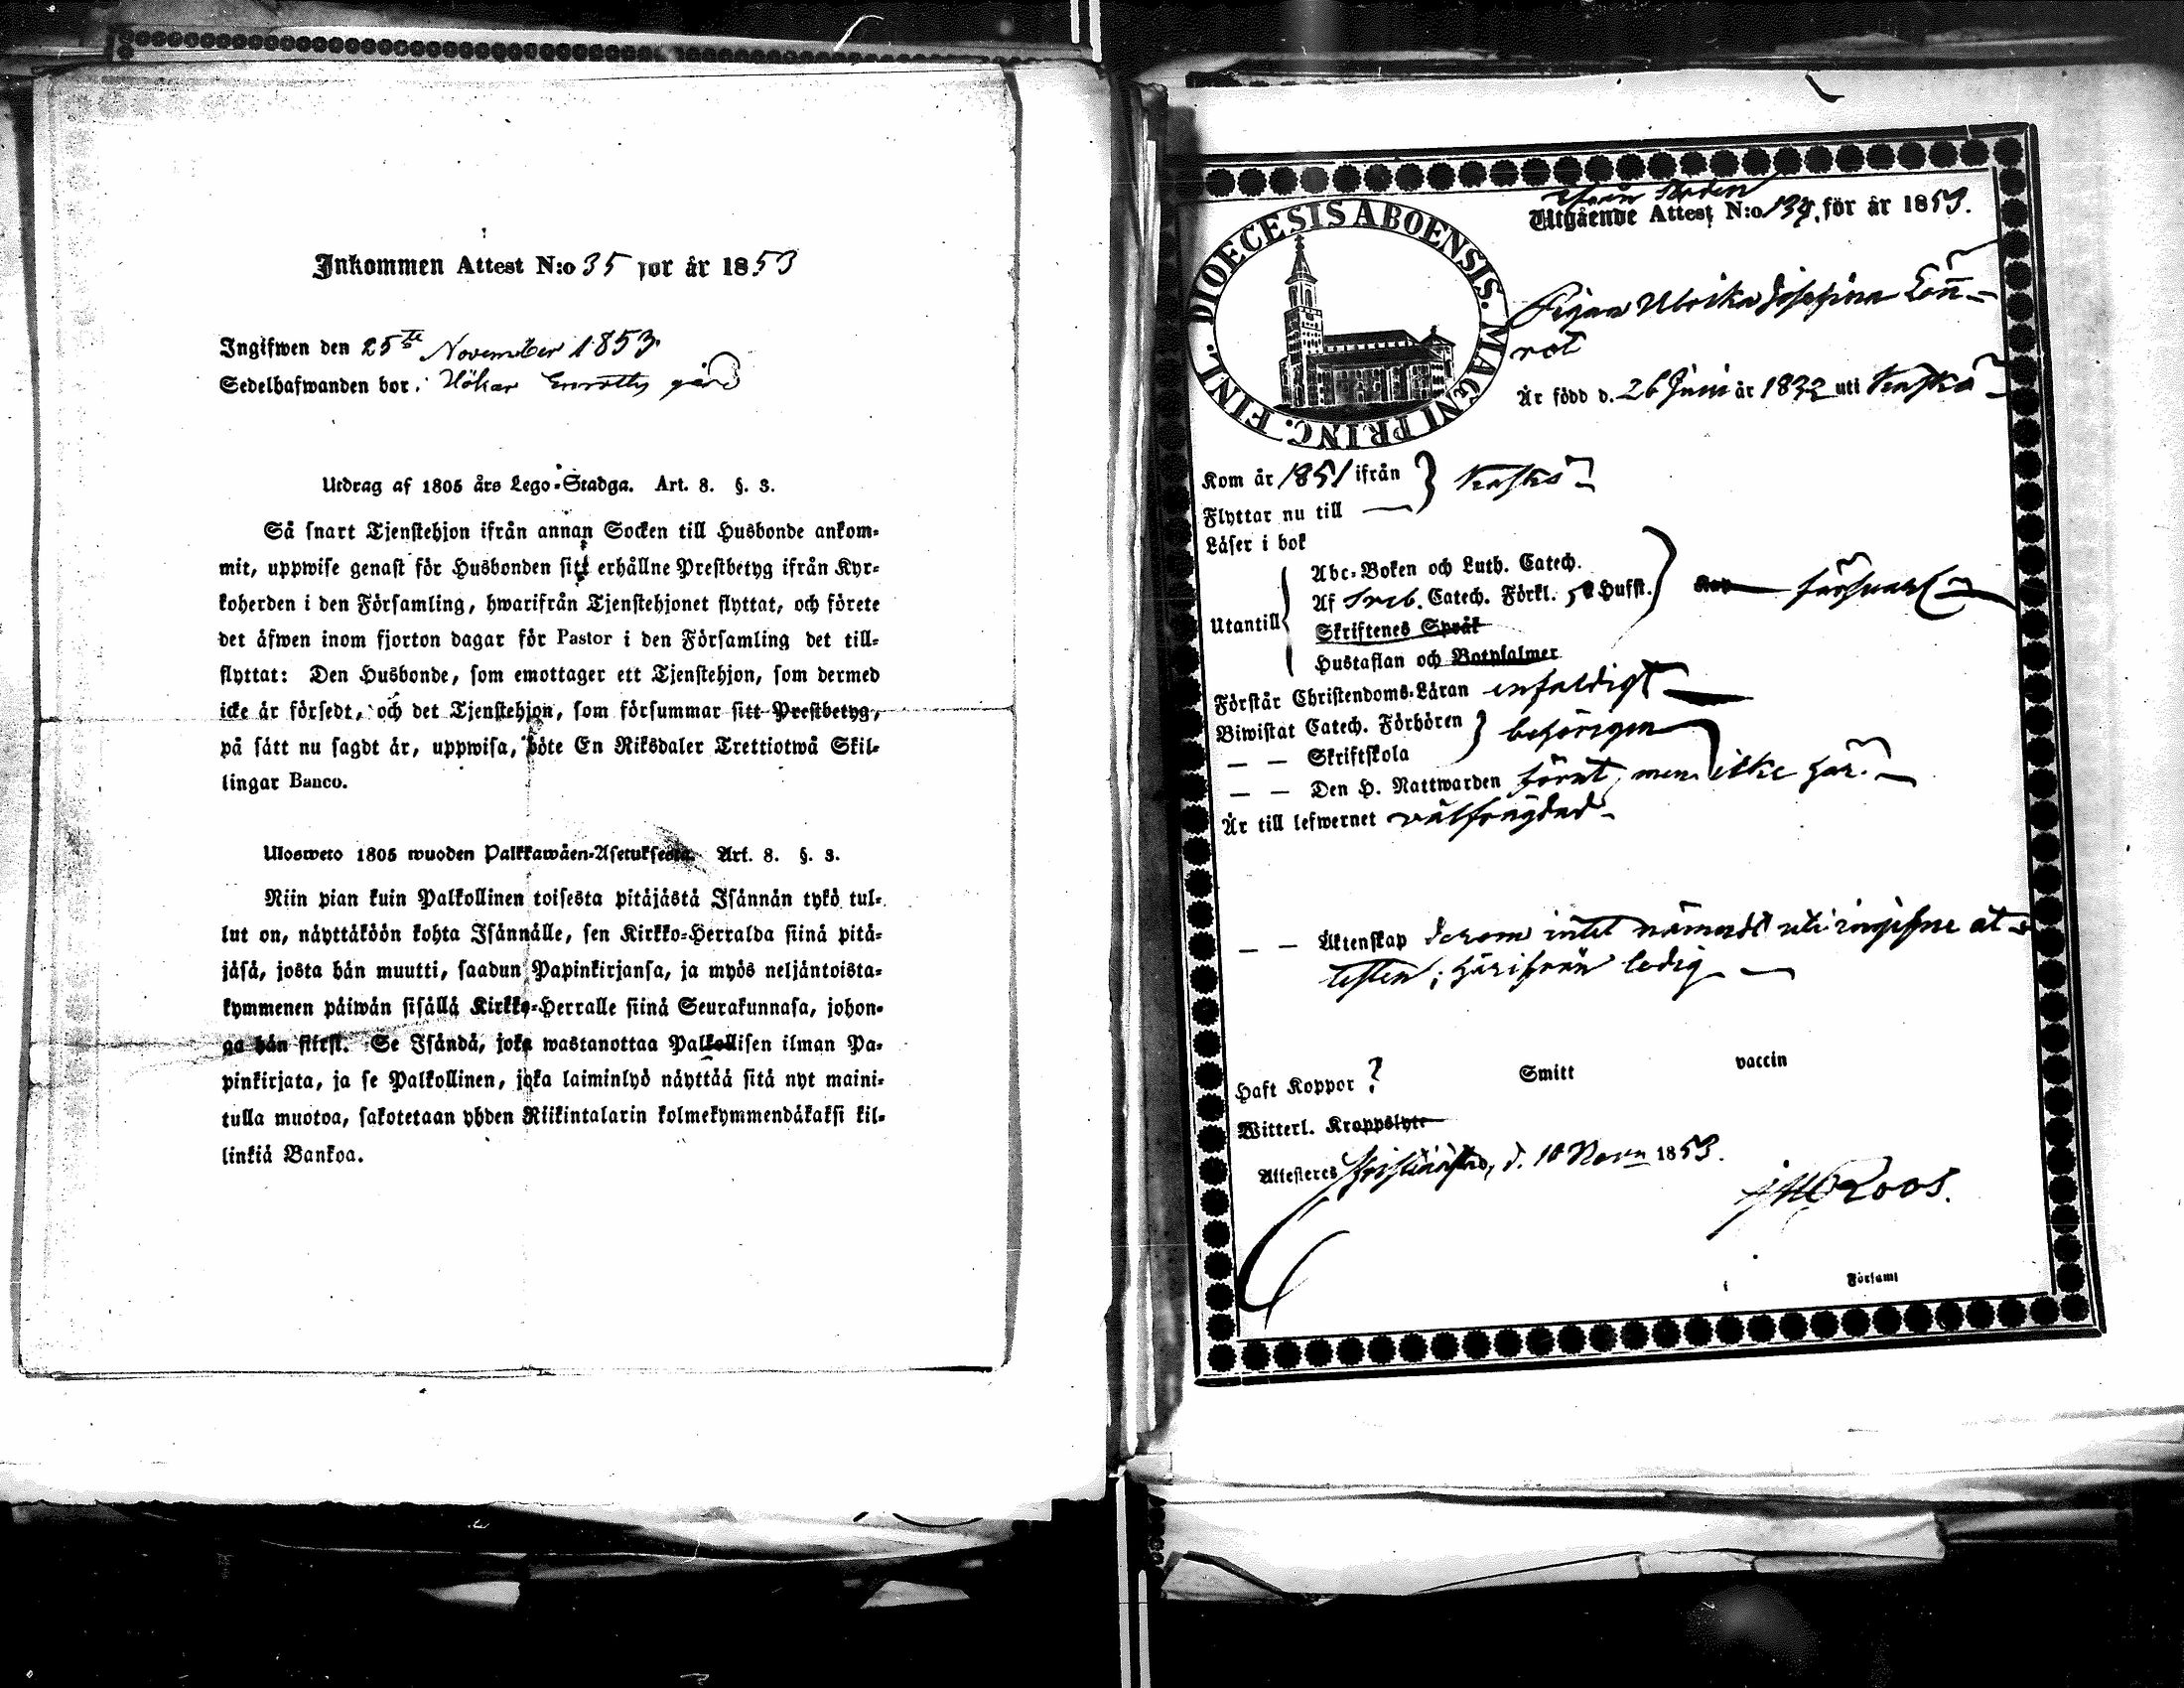 Inkommen Attest N:o 35 för år 1853
Ingifwen den 25te November 1853
Sedelhafwanden bor i Hökar Enroths gård
Utdrag af 1805 års Lego-Stadga. Art. 8. §. 3.
Så snart Tjenstehjon ifrån annan Socken till Husbonde ankom-
mit, uppwise genast för Husbonden sitt erhållne Prestbetyg ifrån Kyr-
koherden i den Församling, hwarifrån Tjenstehjonet flyttat, och förete
det äfwen inom fjorton dagar för Pastor i den Församling det till-
flyttat: Den Husbonde, som emottager ett Tjenstehjon, som dermed
icke är försedt, och det Tjenstehjon, som försummar sitt Prestbetyg,
på sätt nu sagdt är, uppwisa, böte En Riksdaler Trettiotwå Skil-
lingar Banco.
Ulosweto 1805 wuoden Palkkawäen-Asetuksesta. Art. 8. §. 3.
Niin pian kuin Palkollinen toisesta pitäjästä Isännän tykö tul-
lut on, näyttäköön kohta Isännälle, sen Kirkko-Herralda siinä pitä-
jäsä, josta hän muutti, saadun Papinkirjansa, ja myös neljäntoista-
kymmenen päiwän sisällä Kirkko-Herralle siinä Seurakunnasa, johon-
ga hän siirsi. Se Isändä, joka wastanottaa Palkollisen ilman Pa-
pinkirjata, ja se Palkollinen, joka laiminlyö näyttää sitä nyt maini-
tulla muotoa, sakotetaan yhden Riikintalarin kolmekymmendäkaksi kil-
linkiä Bankoa.
DIOECESIS ABOENSIS. MAGNI PRINC. FINL.
ifrån Staden
Utgående Attest N:o 134, för år 1853.
Pigan Ulrika Josefina Lönn-
rot
Är född d. 26 Juni år 1832 uti Kaskö
Kom år 1851 ifrån } Kaskö
Flyttar nu till —
Läser i bok
Abc-Boken och Luth. Catech.
Af Sveb. Catech. Förkl. 5 Hufst. försvarl.
Utantill
Skriftenes Språk
Hustaflan och Botpsalmer
Förstår Christendoms-Läran enfaldigt
Biwistat Catech. Förhören } behörigen
— — Skriftskola
— — Den H. Nattwarden förut, men icke här.
Är till lefwernet välfrägdad
— — Äktenskap derom intet nämndt uti ingifne at-
testen; härifrån ledig
Haft Koppor ? Smitt vaccin
Witterl. Kroppslyte
Attesteres Kristinestad, d. 10 Novr 1853.
Roos.
i Församl